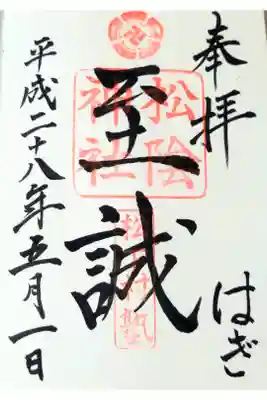 奉拝
はぎ
至誠
松陰神社
松下村塾
平成二十八年五月一日